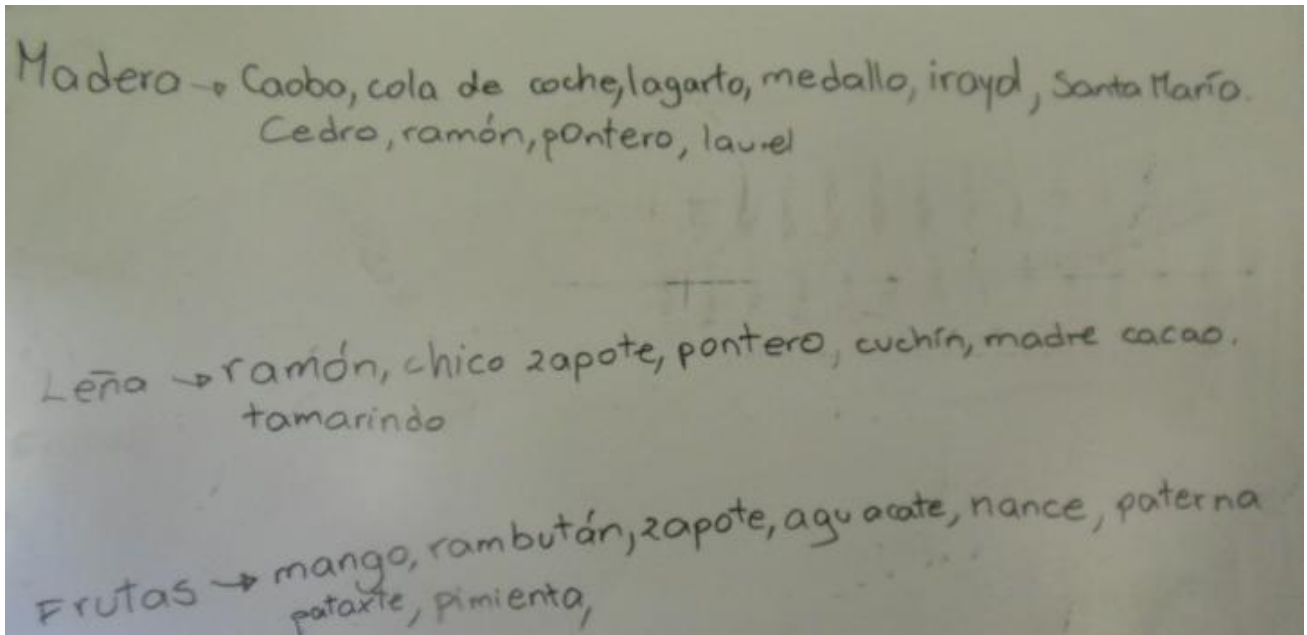 Madera → Caoba, cola de coche, lagarto, medallo, irayol, Santa María.
Cedro, ramón, pontero, laurel
Leña → ramón, chico zapote, pontero, cuchín, madre cacao.
tamarindo
Frutas → mango, rambután, zapote, aguacate, nance, paterna
pataxte, pimienta,